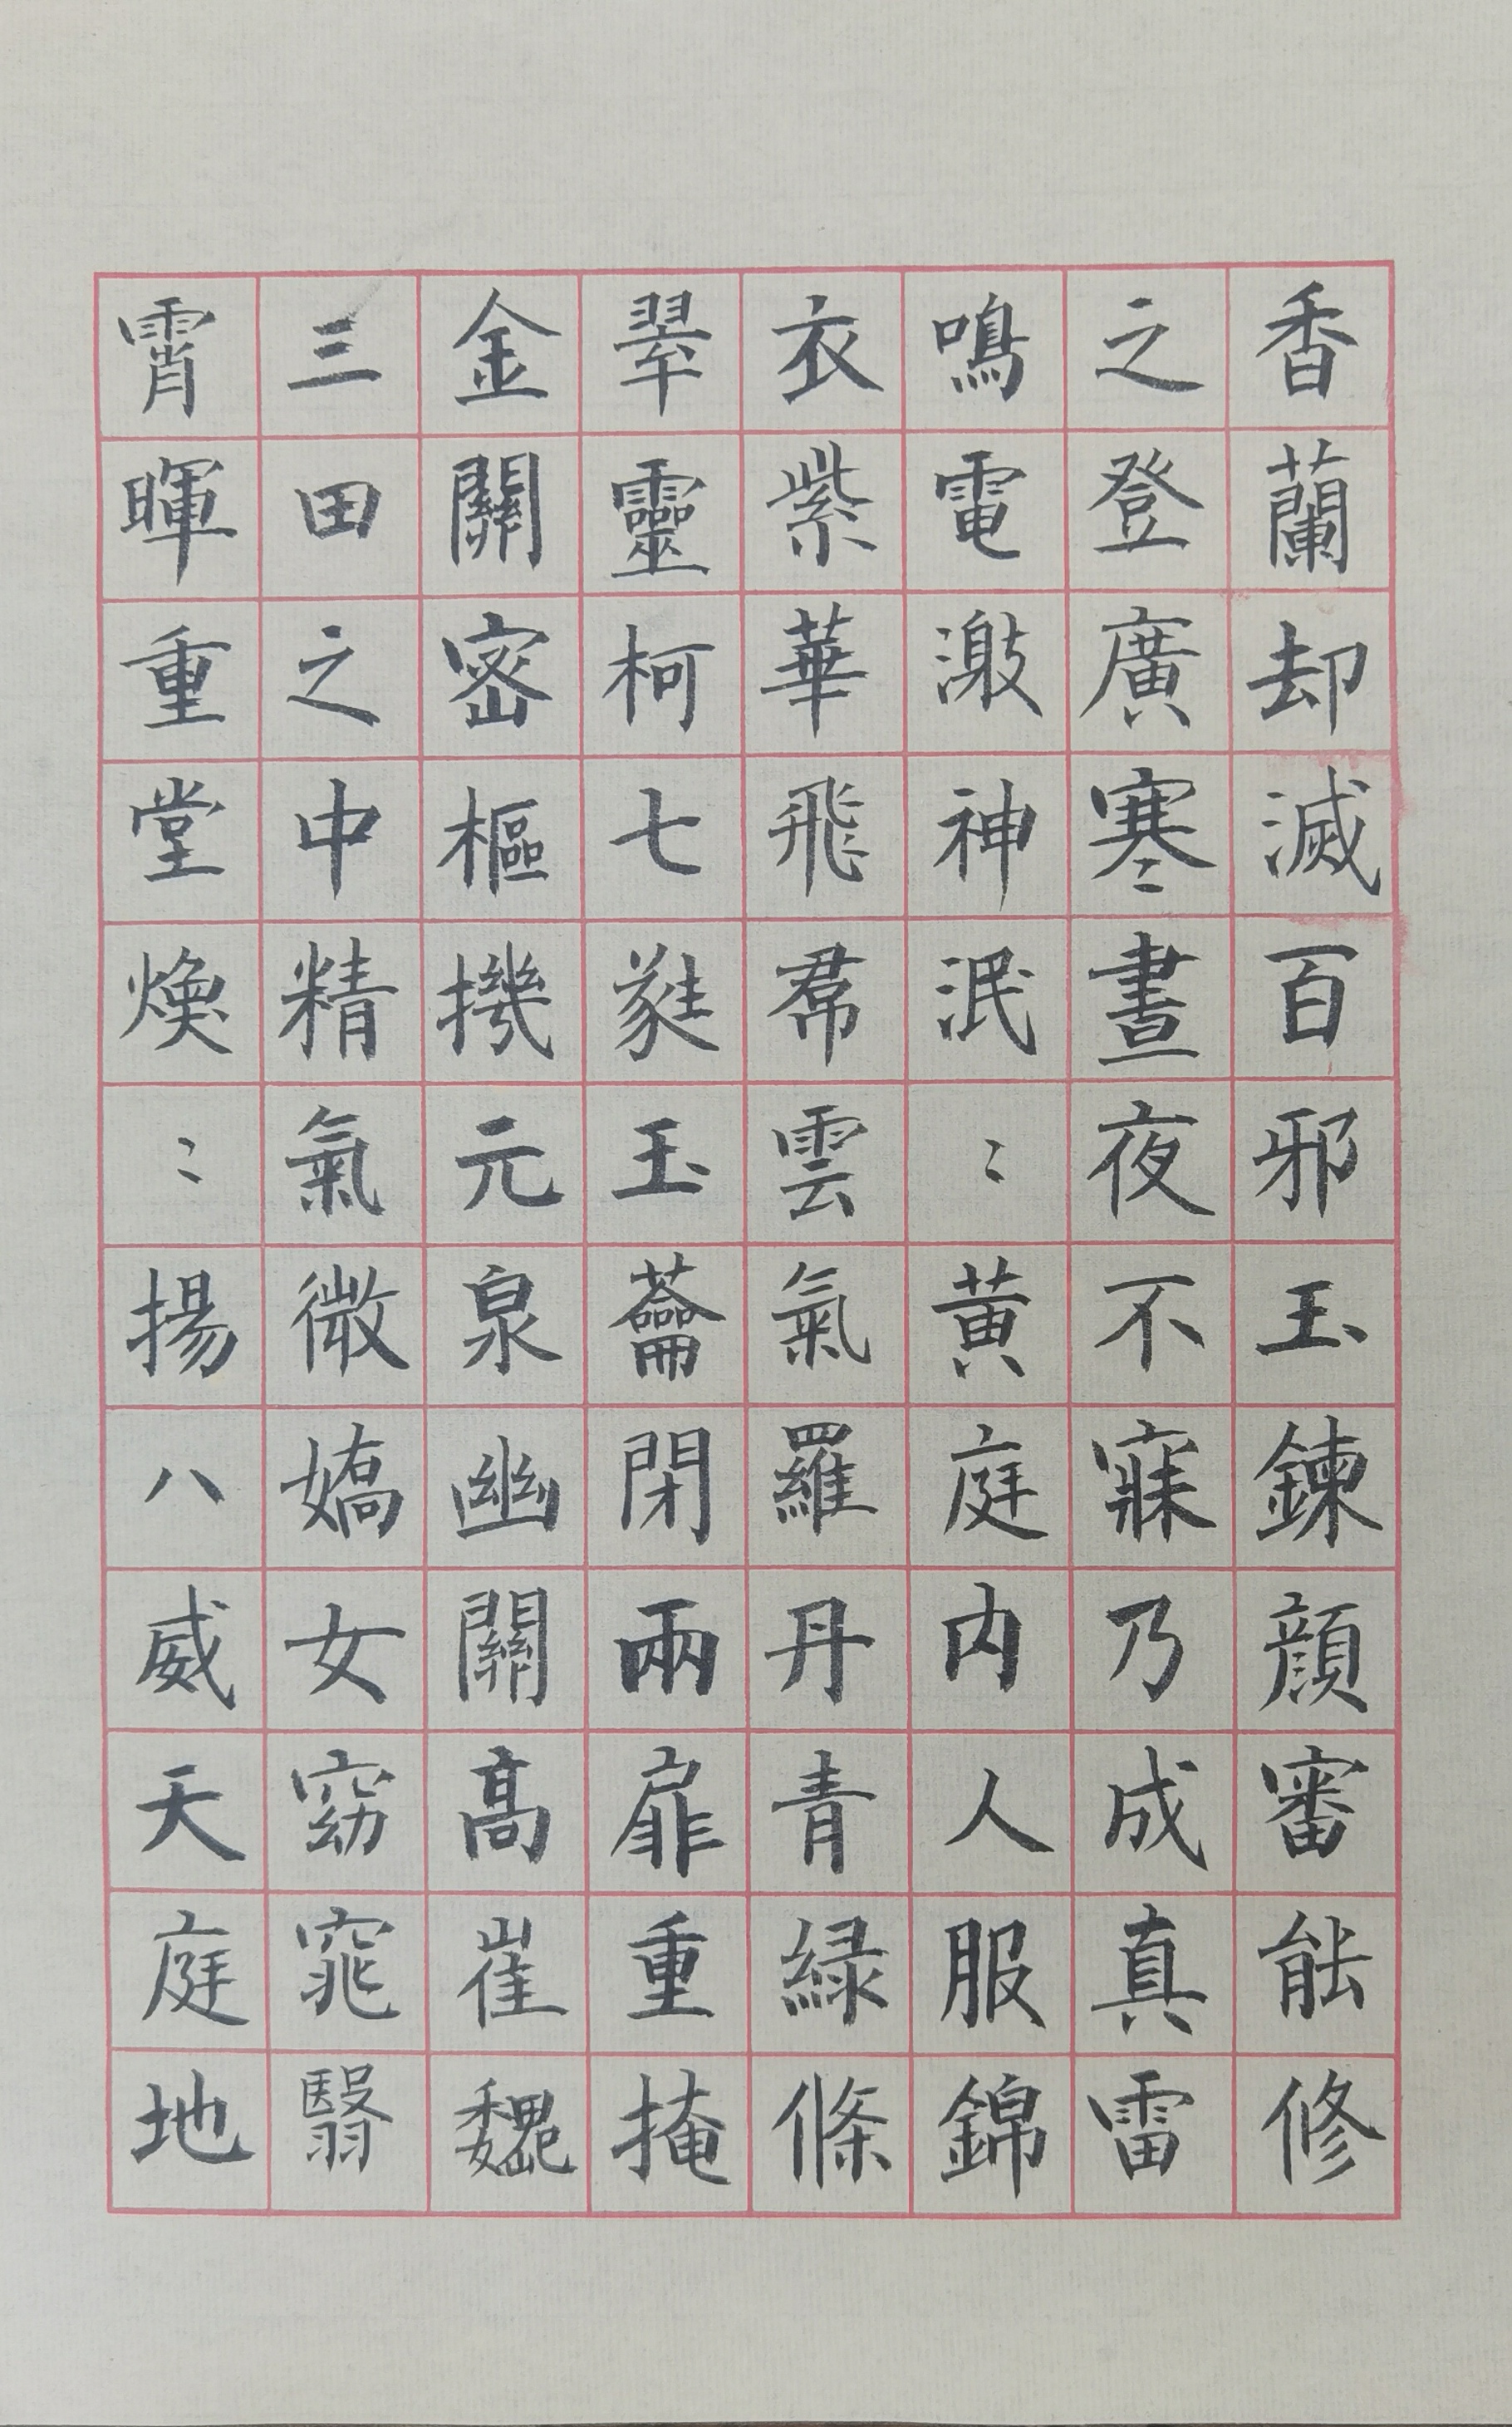 香蘭却滅百邪玉鍊顔審能修
之登廣寒晝夜不寐乃成真雷
鳴電激神泯〻黄庭内人服錦
衣紫華飛帬雲氣羅丹青緑條
翠靈柯七蕤玉籥閉兩扉重掩
金關密樞機元泉幽關髙崔巍
三田之中精氣微嬌女窈窕翳
霄暉重堂煥〻揚八威天庭地